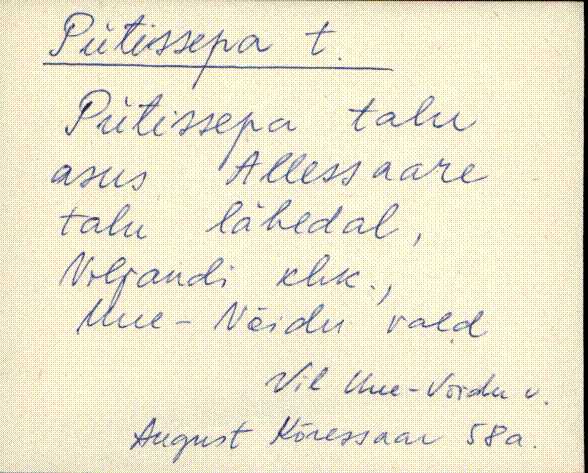 Pütissepa t.
Pütissepa talu
asus Allessaare
talu lähedal,
Viljandi khk.,
Uue-Võidu vald
Vil Uue-Võidu v.
August Kõressaar 58a.